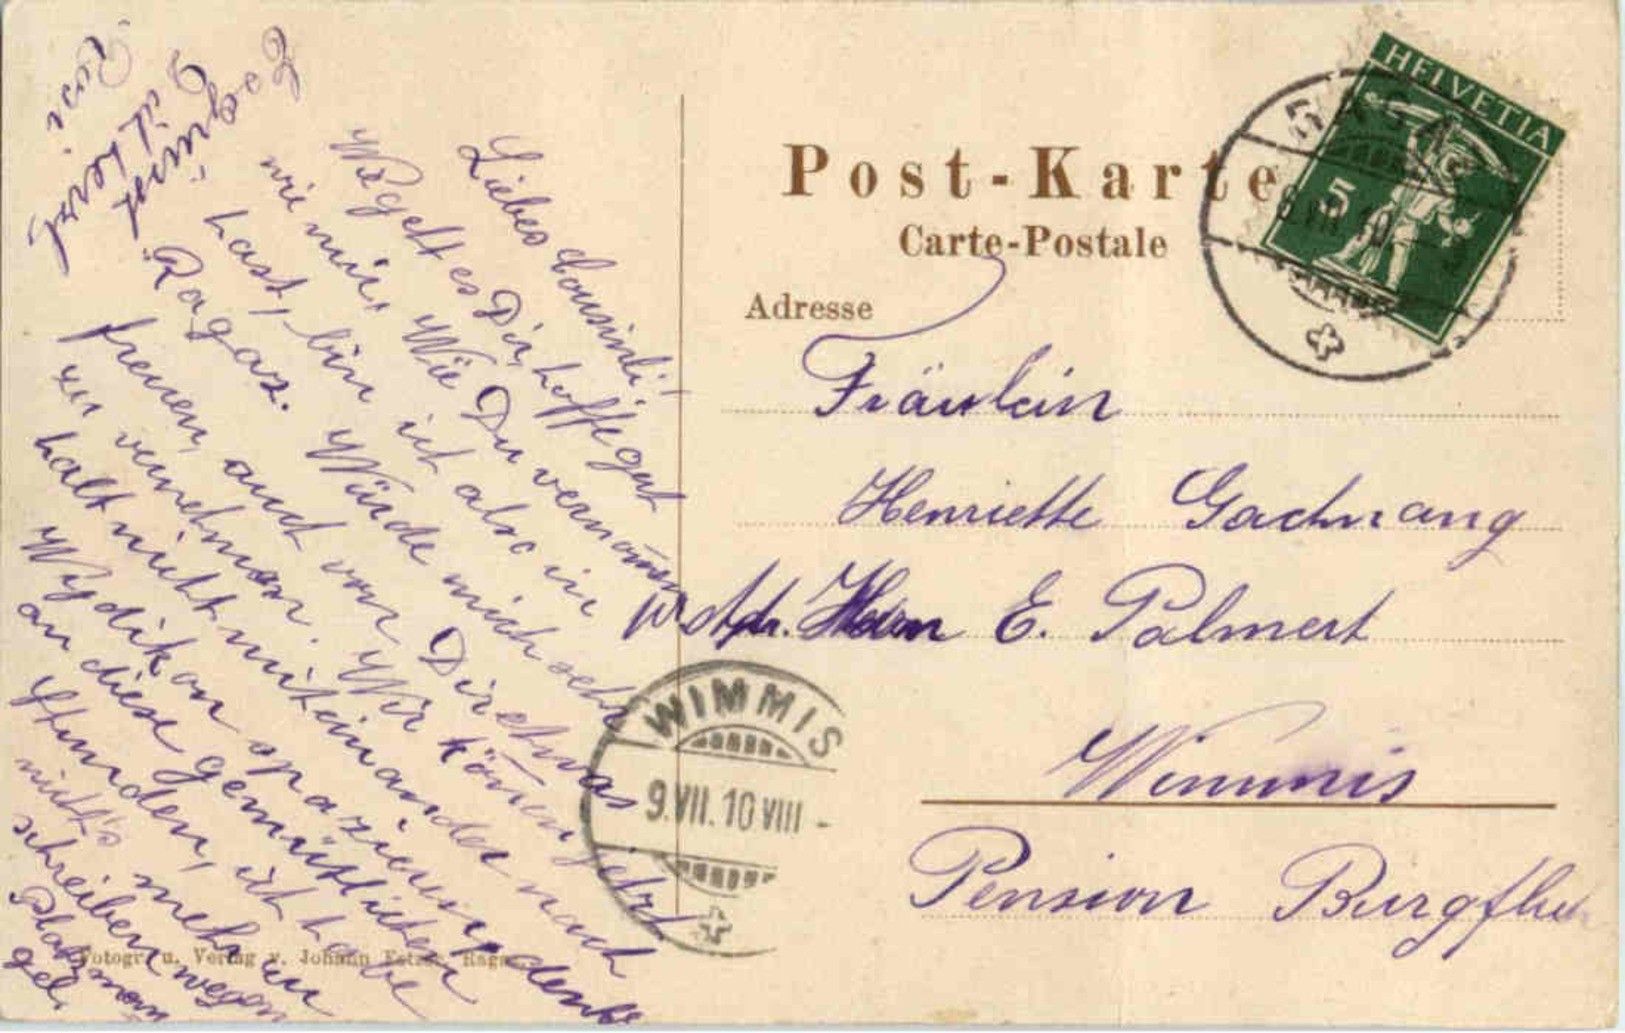 Liebes Cousinli!
Wie geht es Dir, hoffe gut
wie mir. Wie Du vernom̄en
hast, bin ich also in
Ragaz. Würde mich sehr
freuen, auch von Dir etwas
zu vernehmen. Wir kön̄en jetzt
halt nicht miteinander nach
Wydikon spazieren, denke
an diese gemütlichen
Stunden, ich habe
nichts mehr zu
schreiben wegen
Platzman
gel.
Rosi
Post-Karte
Carte-Postale
Adresse
HELVETIA
5
RAGAZ
8.VII.10
Fräulein
Henriette Gachnang
p. Adr. Herrn E. Palmert
Wimmis
Pension Burgfluh
WIMMIS
9.VII.10 VIII -
Fotogr. u. Verlag v. Johann Fetzer, Ragaz